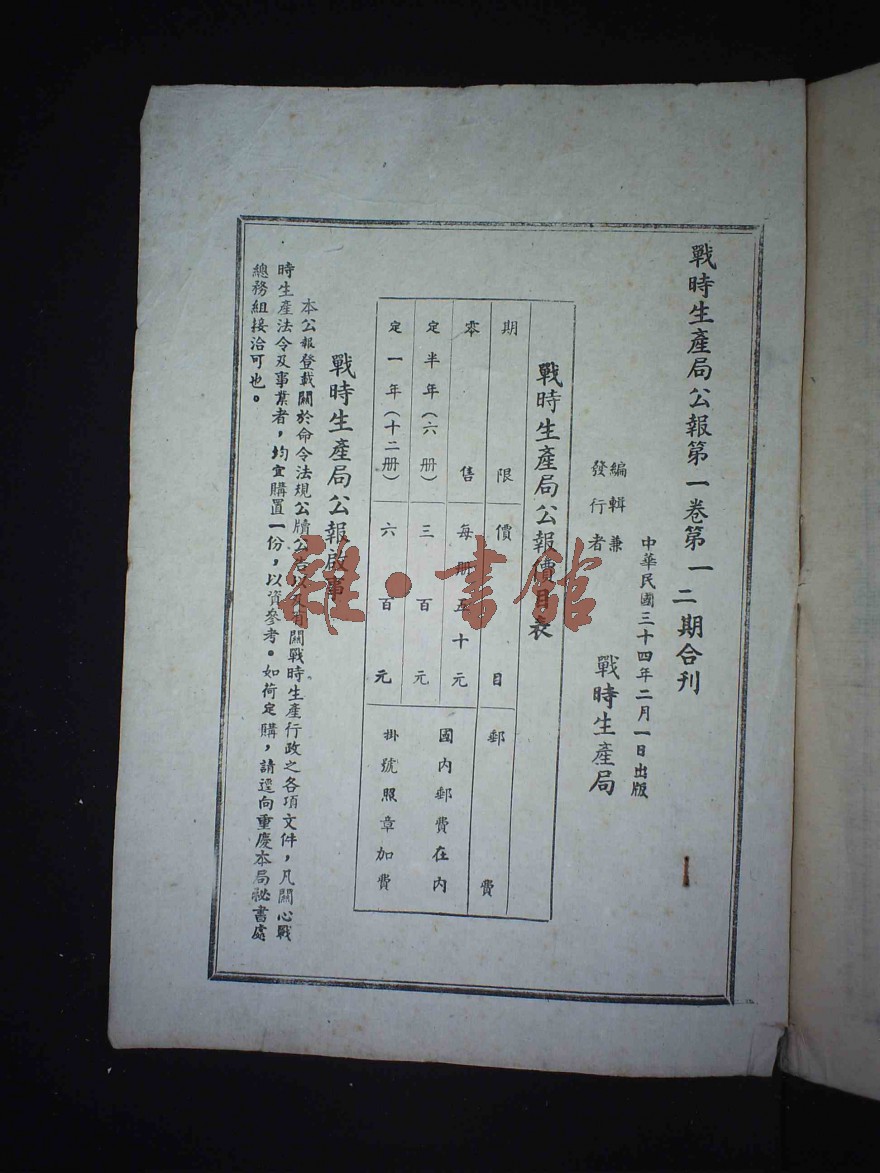 戰時生產局公報第一卷第一二期合刊
中華民國三十四年二月一日出版
編輯兼
發行者
戰時生產局
戰時生產局公報價目表
期限 價目 郵費
零售 每冊五十元 國內郵費在內
定半年(六冊) 三百元
定一年(十二冊) 六百元 掛號照章加費
戰時生產局公報啟事
本公報登載關於命令法規公牘公告以及有關戰時生產行政之各項文件,凡關心戰
時生產法令及事業者,均宜購置一份,以資參考。如荷定購,請逕向重慶本局祕書處
總務組接洽可也。
雜·書館